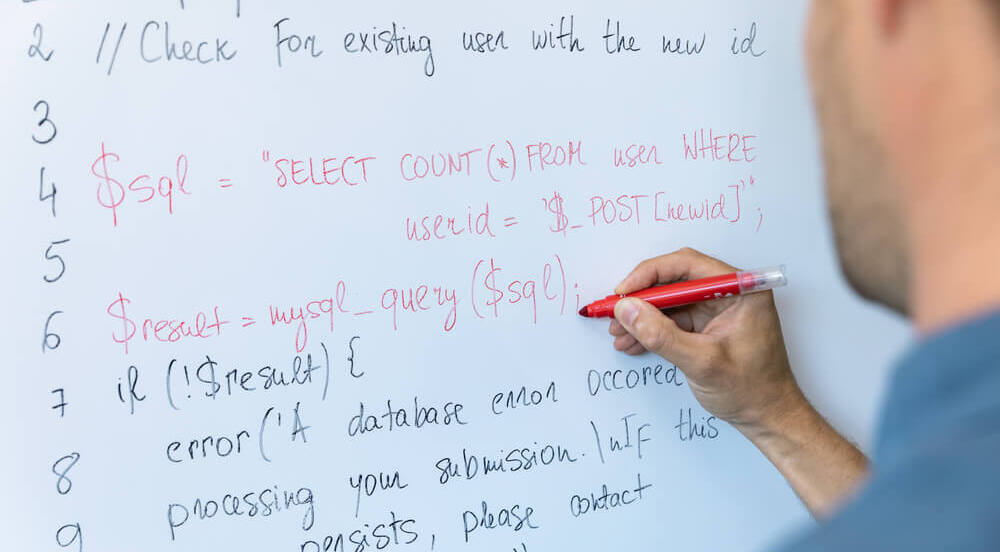 2 // Check For existing user with the new id
3
4 $sql = "SELECT COUNT(*) FROM user WHERE
userid = '$_POST[newid]'";
5
6 $result = mysql_query($sql);
7 if (!$result) {
8 error('A database error occored
9 processing your submission.\nIf this
persists, please contact